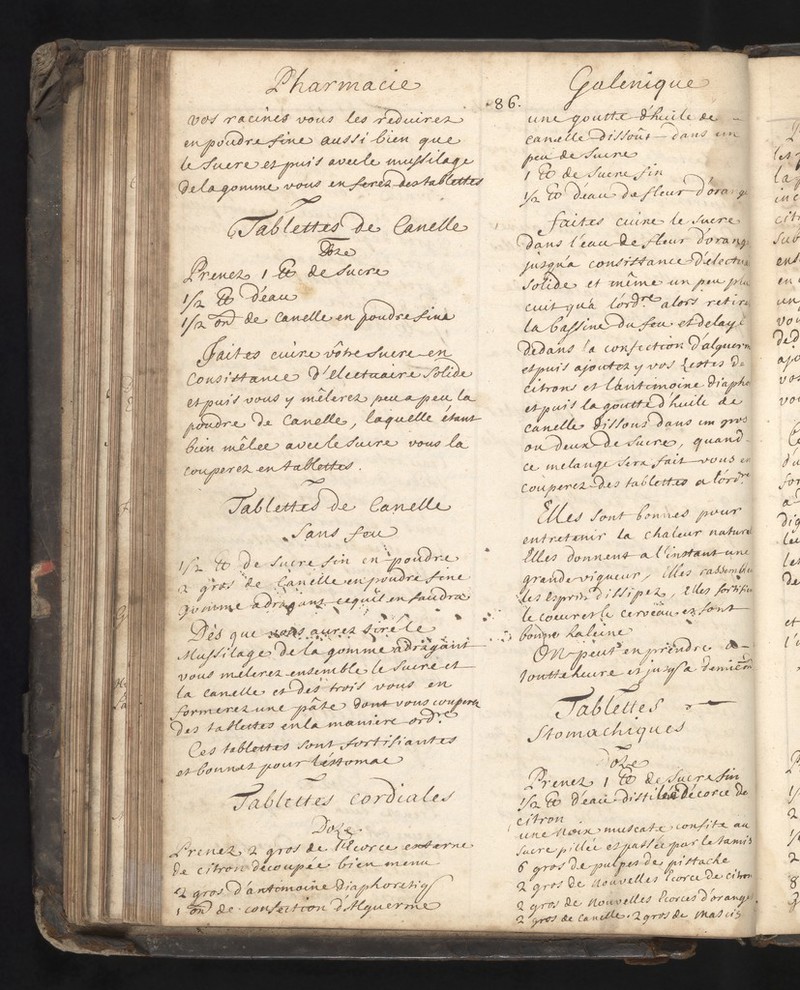 Pharmacie
vos racines vous les reduirez
en poudre fine aussi bien que
le sucre et puis avec le mussilage
de la gomme vous en ferez des tablettes
Tablettes de Canelle
Doze
Prenez 1 ℔ de sucre
1/2 ℔ d'eau
1/2 on de Canelle en poudre fine
faites cuire vôtre sucre en
Consistance d'Electuaire solide
et puis vous y mêlerez peu a peu la
poudre de Canelle, laquelle étant
bien mêlée avec le sucre vous la
couperez en tablettes.
Tablettes de Canelle
sans feu
1/2 ℔ de sucre fin en poudre
2 gros de Canelle en poudre fine
gomme adragant ce qu'il en faudra
Dès que vous aurez tiré le
Mussilage de la gomme adragant
vous mêlerez ensemble le sucre et
la canelle et des trois vous en
formerez une pâte dont vous couperez
des tablettes en la maniere ordre
Ces tablettes sont fortifiantes
et bonnes pour l'éstomac
Tablettes cordiales
Doze
Prenez 2 gros de l'Ecorce externe
de citron découpée bien menu
2 gros d'antimoine diaphoretiq
1 on de confection d'Alquerme
86.
Galenique
une goutte d'huile de
canelle dissout dans un
peu de sucre
1 ℔ de sucre fin
1/2 ℔ d'eau de fleur d'orange
faites cuire le sucre
dans l'eau de fleur d'orang
jusqu'a consistance d'electu
solide et même un peu plu
cuit qu'a l'ordre alors retire
la bassine du feu et delayé
dedans la confection d'alquerm
et puis ajoutez y vos zestes de
citrons et l'antimoine diapho
et puis la goutte d'huile de
canelle dissous dans un gros
ou deux de sucre, quand
ce melange sera fait vous en
couperez des tablettes a l'ordre
Elles sont bonnes pour
entretenir la chaleur nature
Elles donnent a l'instant une
grande vigueur, Elles rassemble
les Esprits dissipez, Elles fortifie
le coeur et le cerveau et font
bonne haleine
On peut en prendre a
toutte heure et jusqu'a demie
Tablettes
Stomachiques
Doze
Prenez 1 ℔ de sucre fin
1/2 ℔ d'eau distilée d'écorce de
citron
une noix muscate confite au
sucre pillée et passée par le tamis
6 gros de pulpes de pistache
2 gros de nouvelles Ecorce de citron
2 gros de nouvelles Ecorces d'orange
2 gros de Canelle. 2 gros de Macis